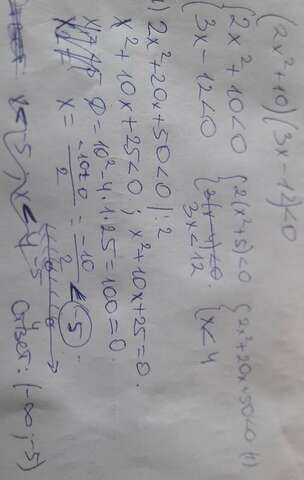 (2x²+10)(3x-12)<0
{2x²+10<0 {2(x²+5)<0 {2x²+20x+50<0 (1)
{3x-12<0 3x<12 {x<4
1) 2x²+20x+50<0 |:2
x²+10x+25<0; x²+10x+25=0.
D=10²-4·1·25=100=0.
x= -10±0/2 = -10/2 = -5
x<4 -5 4
Ответ: (-∞; -5)